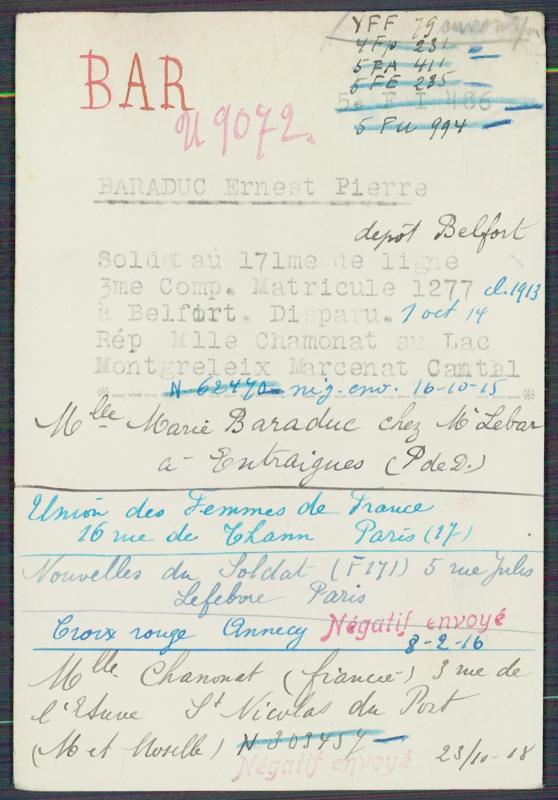 YFF 79
4 Fp 231
5 EA 411
5 FE 235
5. F I 486
5 FU 994
BAR
U 9072.
BARADUC Ernest Pierre
depôt Belfort
Soldat au 171me de ligne
3me Comp. Matricule 1277 cl. 1913
à Belfort. Disparu. 1 oct 14
Rép Mlle Chamonat au Lac
Montgreleix Marcenat Cantal
N 62470 nég. env. 16-10-15
Mlle Marie Baraduc chez Mr Lebar
à Entraigues (P de D.)
Union des Femmes de France
16 rue de Thann Paris (17)
Nouvelles du Soldat (F171) 5 rue Jules
Lefebvre Paris
Croix rouge Annecy Négatif envoyé
8-2-16
Mlle Chanonat (fiancée) 3 rue de
l'Etuve St Nicolas du Port
(M et Moselle) N 303457
Négatif envoyé 23/10-18